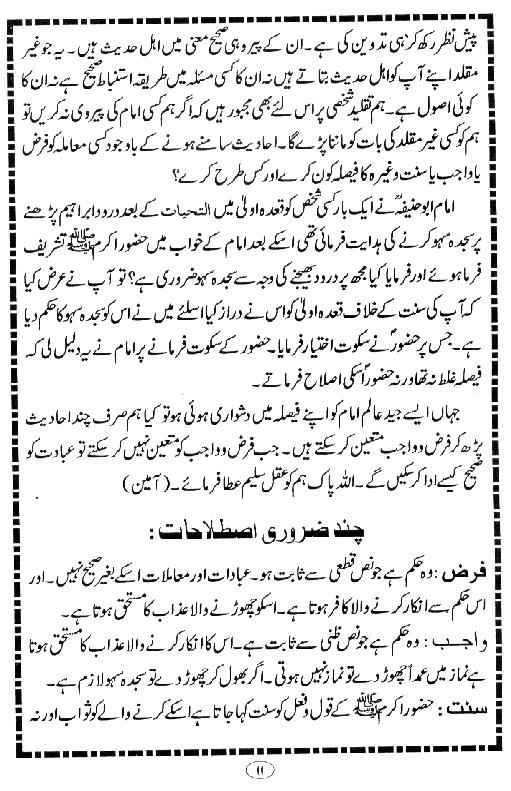 پیش نظر رکھ کر ہی تدوین کی ہے۔ ان کے پیرو ہی صحیح معنی میں اہل حدیث ہیں۔ یہ جو غیر
مقلد اپنے آپ کو اہل حدیث بتاتے ہیں نہ ان کا کسی مسئلہ میں طریقہ استنباط صحیح ہے نہ ان کا
کوئی اصول ہے۔ ہم تقلید شخصی پر اس لئے بھی مجبور ہیں کہ اگر ہم کسی امام کی پیروی نہ کریں تو
ہم کو کسی غیر مقلد کی بات کو ماننا پڑے گا۔ احادیث سامنے ہونے کے باوجود کسی معاملہ کو فرض
یا واجب یا سنت وغیرہ کا فیصلہ کون کرے اور کس طرح کرے؟
امام ابو حنیفہؒ نے ایک بار کسی شخص کو قعدہ اولیٰ میں التحیات کے بعد درود ابراہیم پڑھنے
پر سجدہ سہو کرنے کی ہدایت فرمائی تھی اسکے بعد امام کے خواب میں حضور اکرم ﷺ تشریف
فرما ہوئے اور فرمایا کیا مجھ پر درود بھیجنے کی وجہ سے سجدہ سہو ضروری ہے؟ تو آپ نے عرض کیا
کہ آپ کی سنت کے خلاف قعدہ اولیٰ کو اس نے دراز کیا اسلئے میں نے اس کو سجدہ سہو کا حکم دیا
ہے۔ جس پر حضورؐ نے سکوت اختیار فرمایا۔ حضور کے سکوت فرمانے پر امام نے یہ دلیل لی کہ
فیصلہ غلط نہ تھا ورنہ حضورؐ اسکی اصلاح فرماتے۔
جہاں ایسے جید عالم امام کو اپنے فیصلہ میں دشواری ہوئی ہو تو کیا ہم صرف چند احادیث
پڑھ کر فرض و واجب متعین کر سکتے ہیں۔ جب فرض و واجب کو متعین نہیں کر سکتے تو عبادت کو
صحیح کیسے ادا کر سکیں گے۔ اللہ پاک ہم کو عقل سلیم عطا فرمائے۔ (آمین)
چند ضروری اصطلاحات :
فرض : وہ حکم ہے جو نص قطعی سے ثابت ہو۔ عبادات اور معاملات اسکے بغیر صحیح نہیں۔ اور
اس حکم سے انکار کرنے والا کافر ہوتا ہے۔ اسکو چھوڑنے والا عذاب کا مستحق ہوتا ہے۔
واجب : وہ حکم ہے جو نص ظنی سے ثابت ہے۔ اس کا انکار کرنے والا عذاب کا مستحق ہوتا
ہے نماز میں عمداً چھوڑ دے تو نماز نہیں ہوتی۔ اگر بھول کر چھوڑ دے تو سجدہ سہو لازم ہے۔
سنت : حضور اکرم ﷺ کے قول و فعل کو سنت کہا جاتا ہے اسکے کرنے والے کو ثواب اور نہ
۱۱